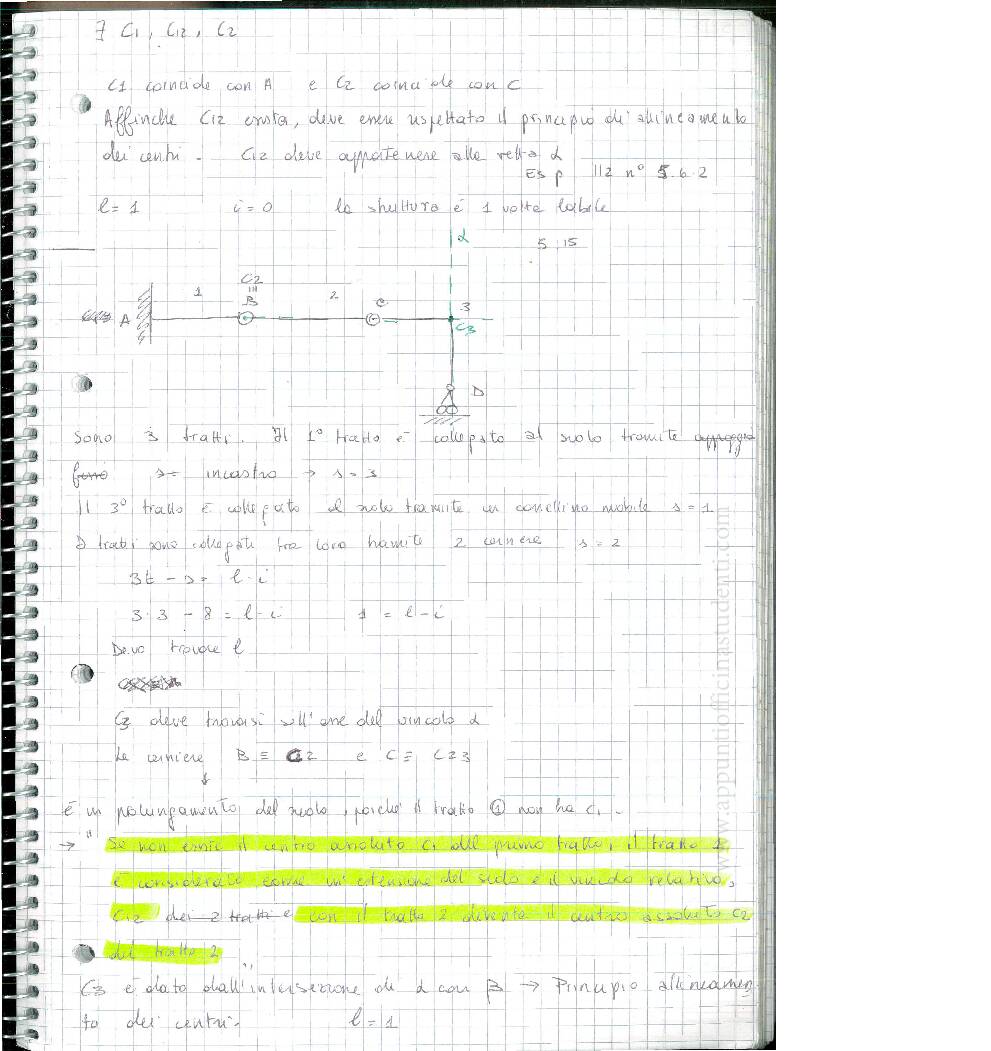 ∃ C1, C12, C2
C1 coincide con A e C2 coincide con C
Affinché C12 esista, deve essere rispettato il principio di allineamento
dei centri. C12 deve appartenere alla retta α
Es p 112 n° 5.6.2
l = 1 i = 0 la struttura è 1 volta labile
α 5.15
C2
1 ≡ 2 C 3
A B C3
D
Sono 3 tratti. Il 1° tratto è collegato al suolo tramite appoggio
fisso s= incastro → s = 3
Il 3° tratto è collegato al suolo tramite un carrellino mobile s = 1
I tratti sono collegati tra loro tramite 2 cerniere s = 2
3t - s = l - i
3·3 - 8 = l - i 1 = l - i
Devo trovare l
C3 deve trovarsi sull'asse del vincolo α
Le cerniere B ≡ C2 e C ≡ C23
↓
è un prolungamento del suolo, poiché il tratto ① non ha C1.
→ "Se non esiste il centro assoluto C1 del primo tratto, il tratto 1
è considerato come un'estensione del suolo e il vincolo relativo,
C12 dei 2 tratti e con il tratto 2 diventa il centro assoluto C2
del tratto 2"
C3 è dato dall'intersezione di α con β → Principio allineamen
to dei centri. l = 1
www.appuntiofficinastudenti.com